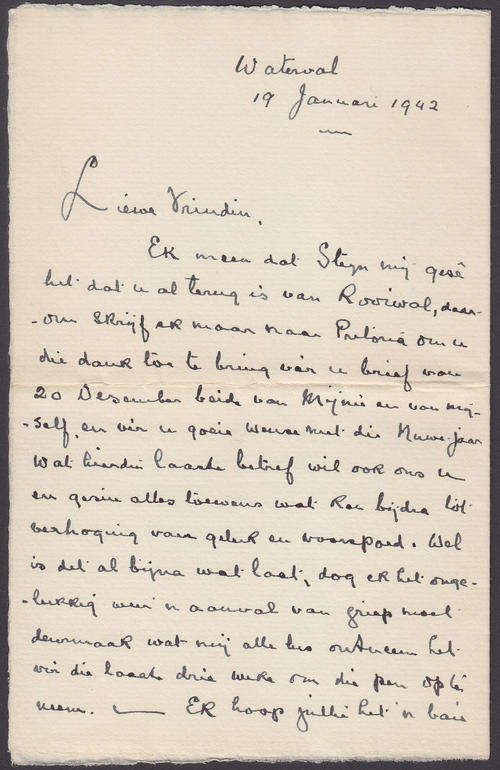 Waterval
19 Januari 1942
Liewe Vrindin,
Ek meen dat Steyn mij gesê
het dat u al terug is van Rooiwal, daar-
-om skrijf ek maar naar Pretoria om u
die dank toe te bring vir u brief van
20 Desember beide van Mijnie en van mij-
-self, en vir u goeie wense met die Nuwe Jaar
Wat hierdie laaste betref wil ook ons u
en gesin alles toewens wat kan bijdra tot
verhoging van geluk en voorspoed. Wel
is dit al bijna wat laat, dog ek het onge-
-lukkig weer 'n aanval van griep moet
deurmaak wat mij alle lus ontneem het
vir die laaste drie weke om die pen op te
neem. — Ek hoop jullie het 'n baie